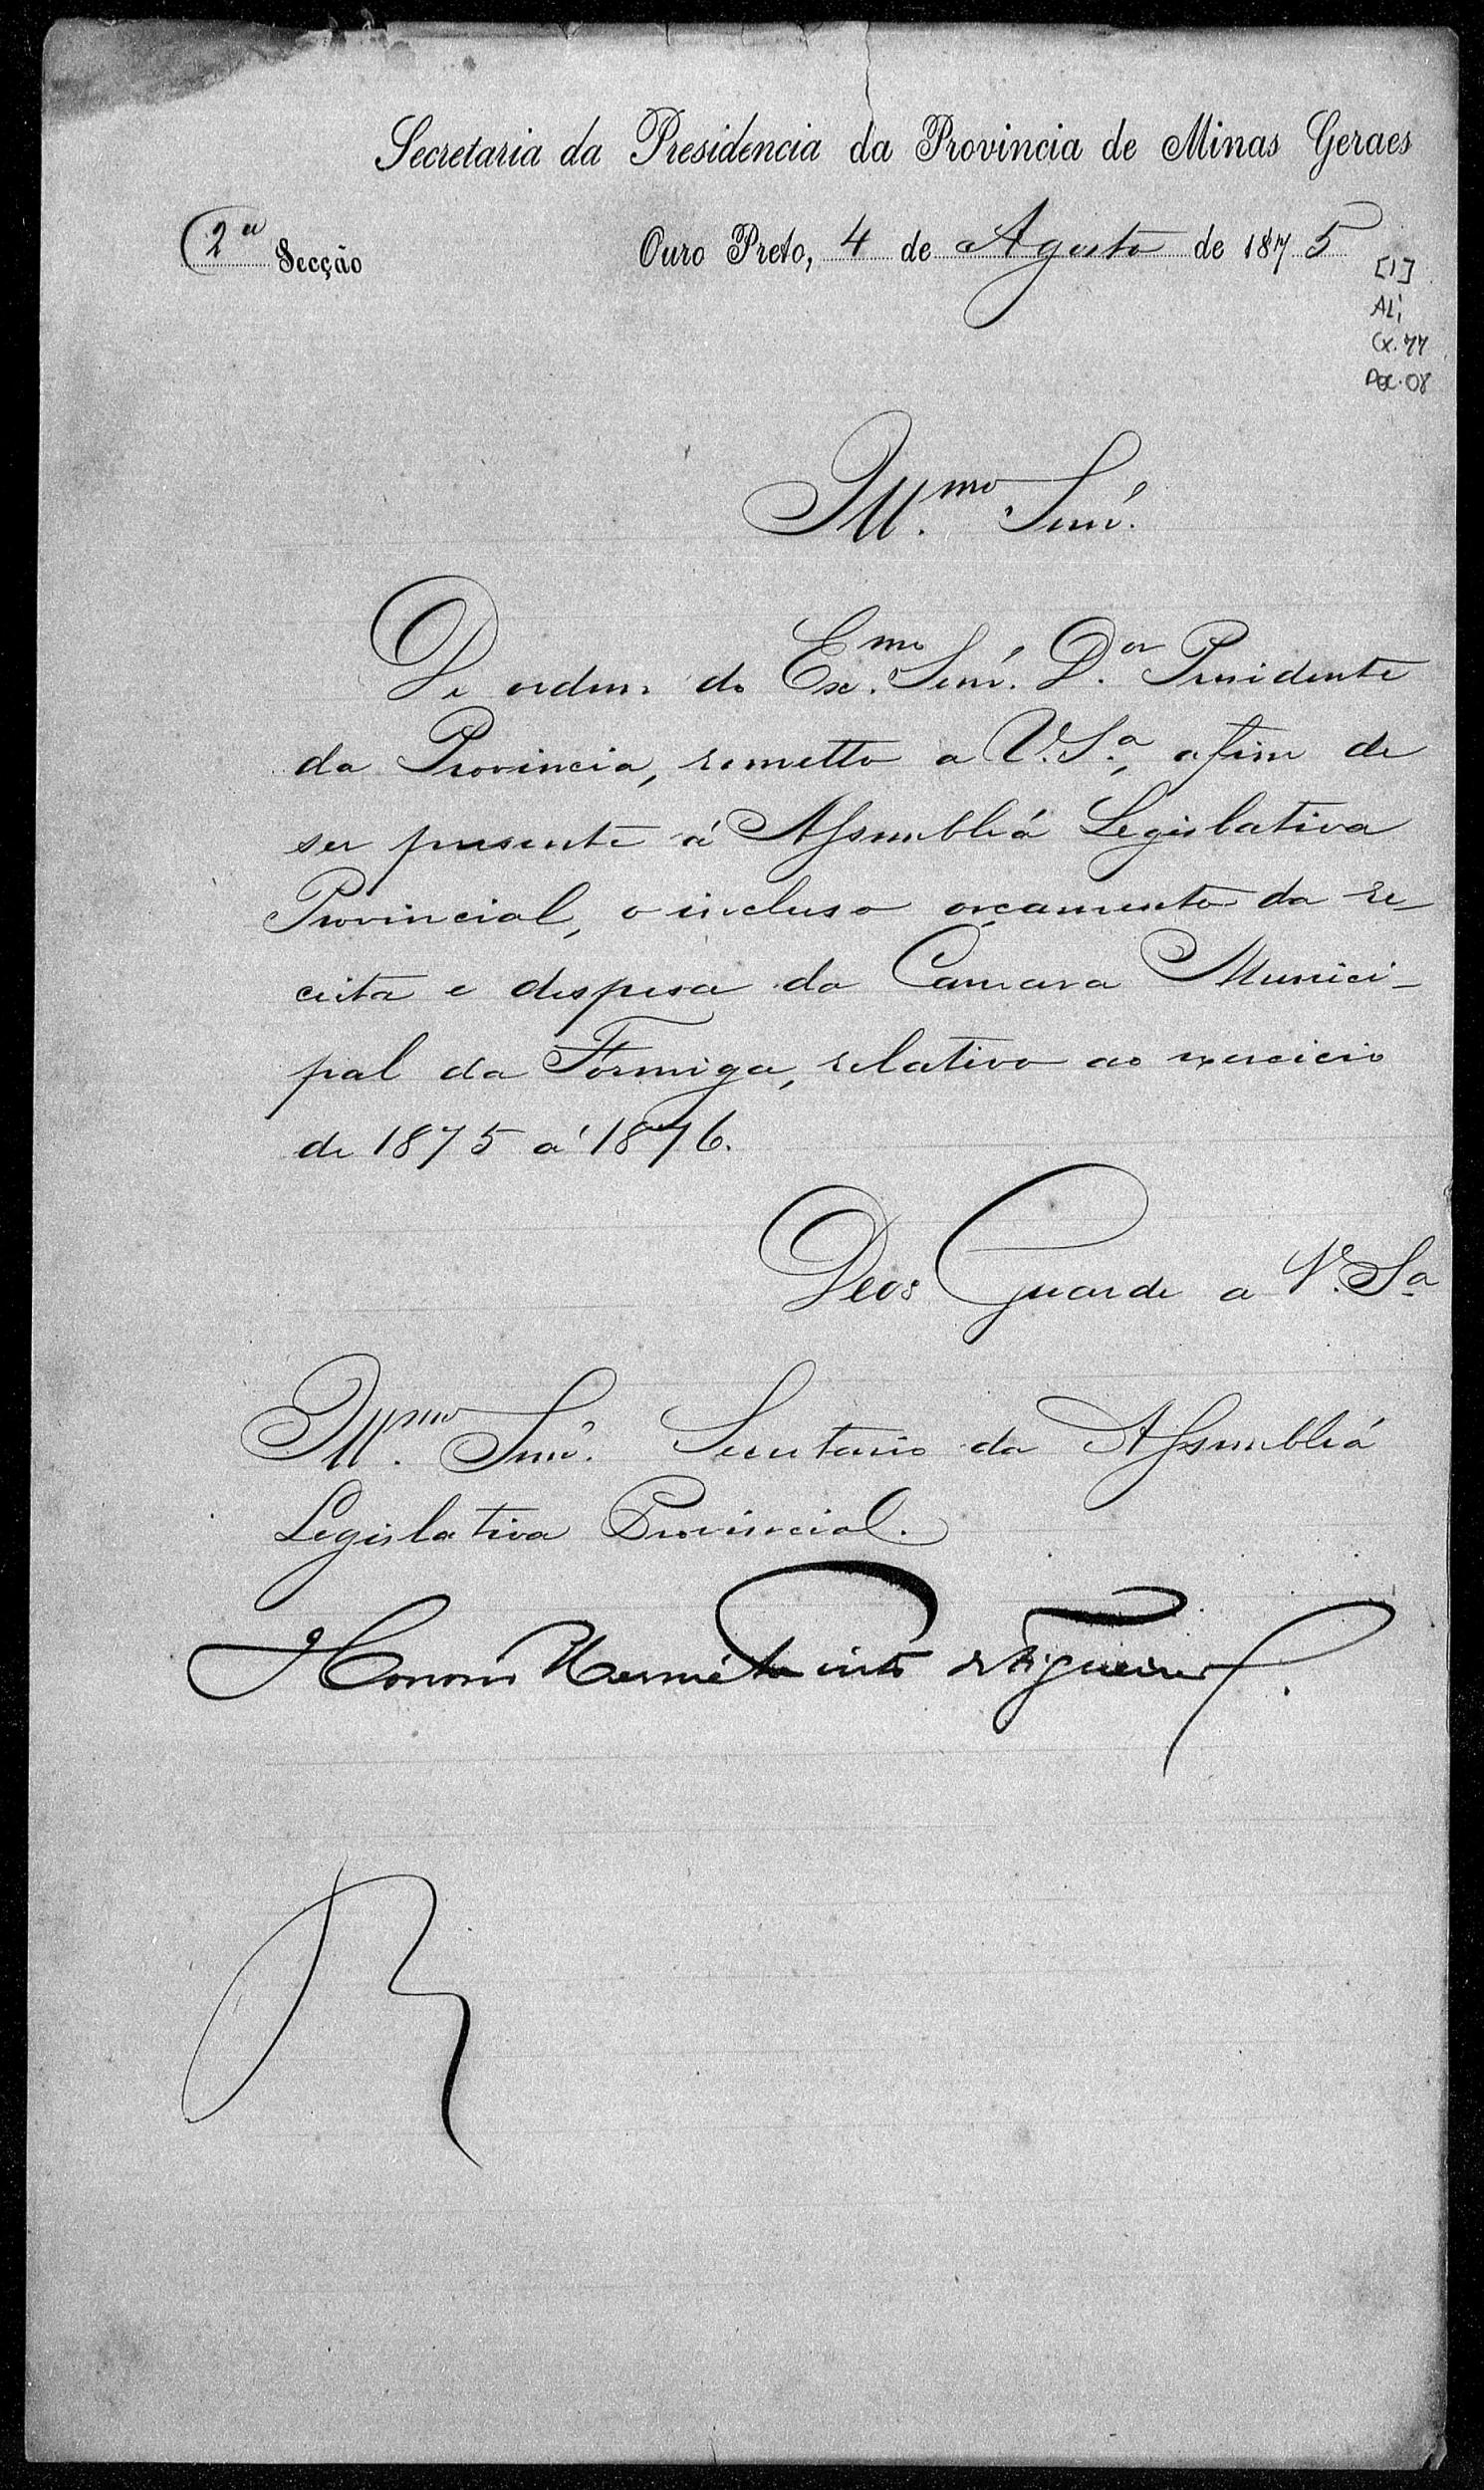 Secretaria da Presidencia da Provincia de Minas Geraes
2ª Secção
Ouro Preto, 4 de Agosto de 1875
[1]
AL1
Cx. 77
Doc. 08
Ill.mo Senr.
De ordem do Ex.mo Senr. D.or Presidente
da Provincia, remetto a V. S.ª, afim de
ser presente á Assembléa Legislativa
Provincial, o incluso orçamento da re-
ceita e despesa da Camara Munici-
pal da Formiga, relativo ao exercicio
de 1875 a 1876.
Deos Guarde a V. S.ª
Ill.mo Senr. Secretario da Assembléa
Legislativa Provincial.
Honorio Hermeto Pinto de Figueiredo.